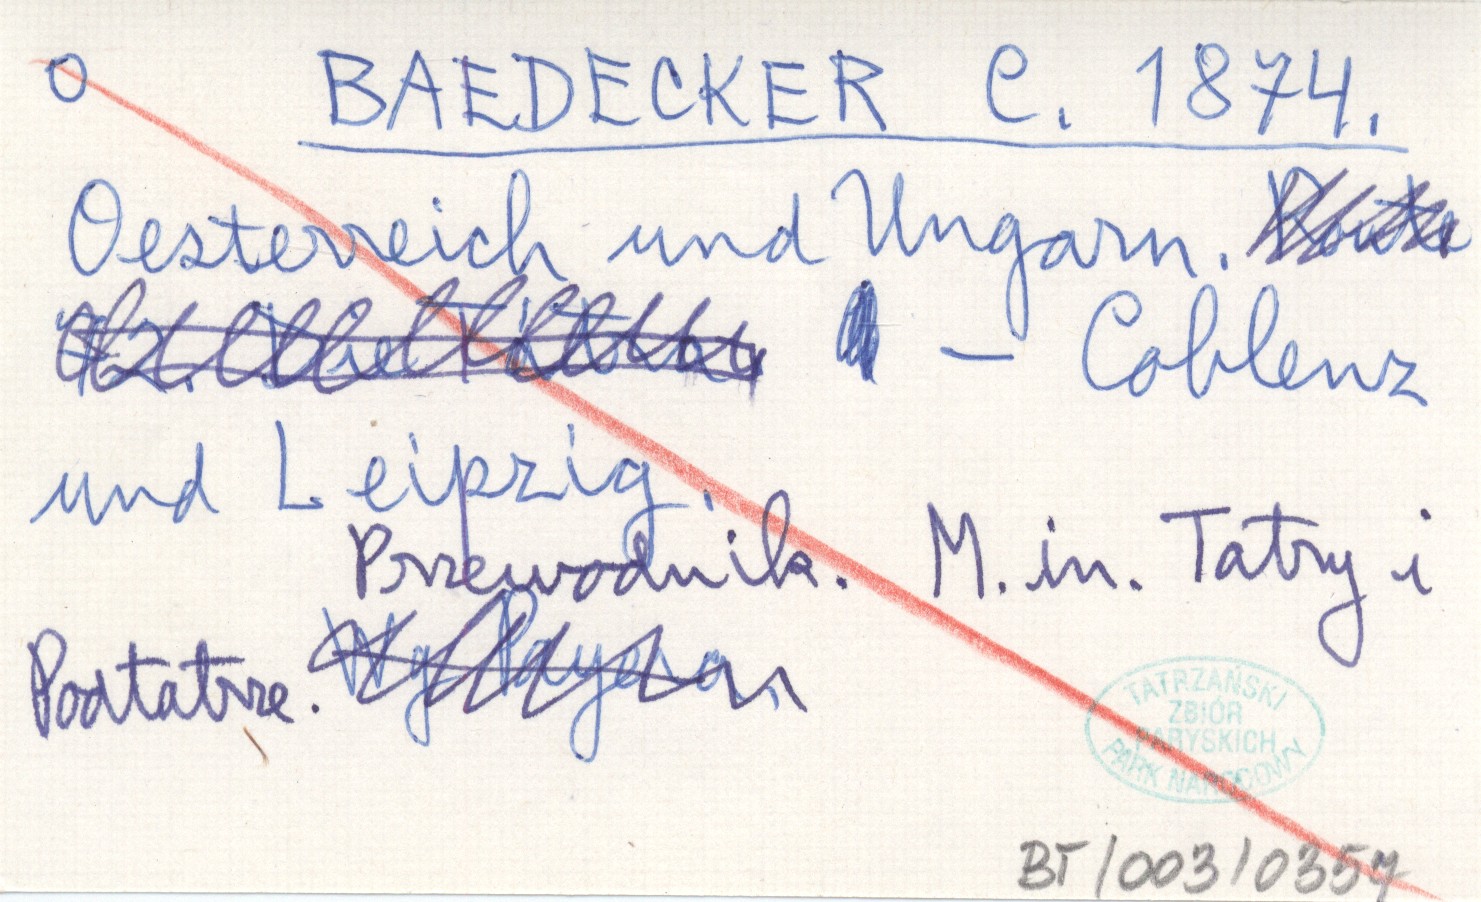 O BAEDECKER C. 1874.
Oesterreich und Ungarn.
— Coblenz
und Leipzig.
Przewodnik. M. in. Tatry i
Podtatrze.
TATRZAŃSKI
ZBIÓR
PARYSKICH
PARK NARODOWY
BT/003/0357